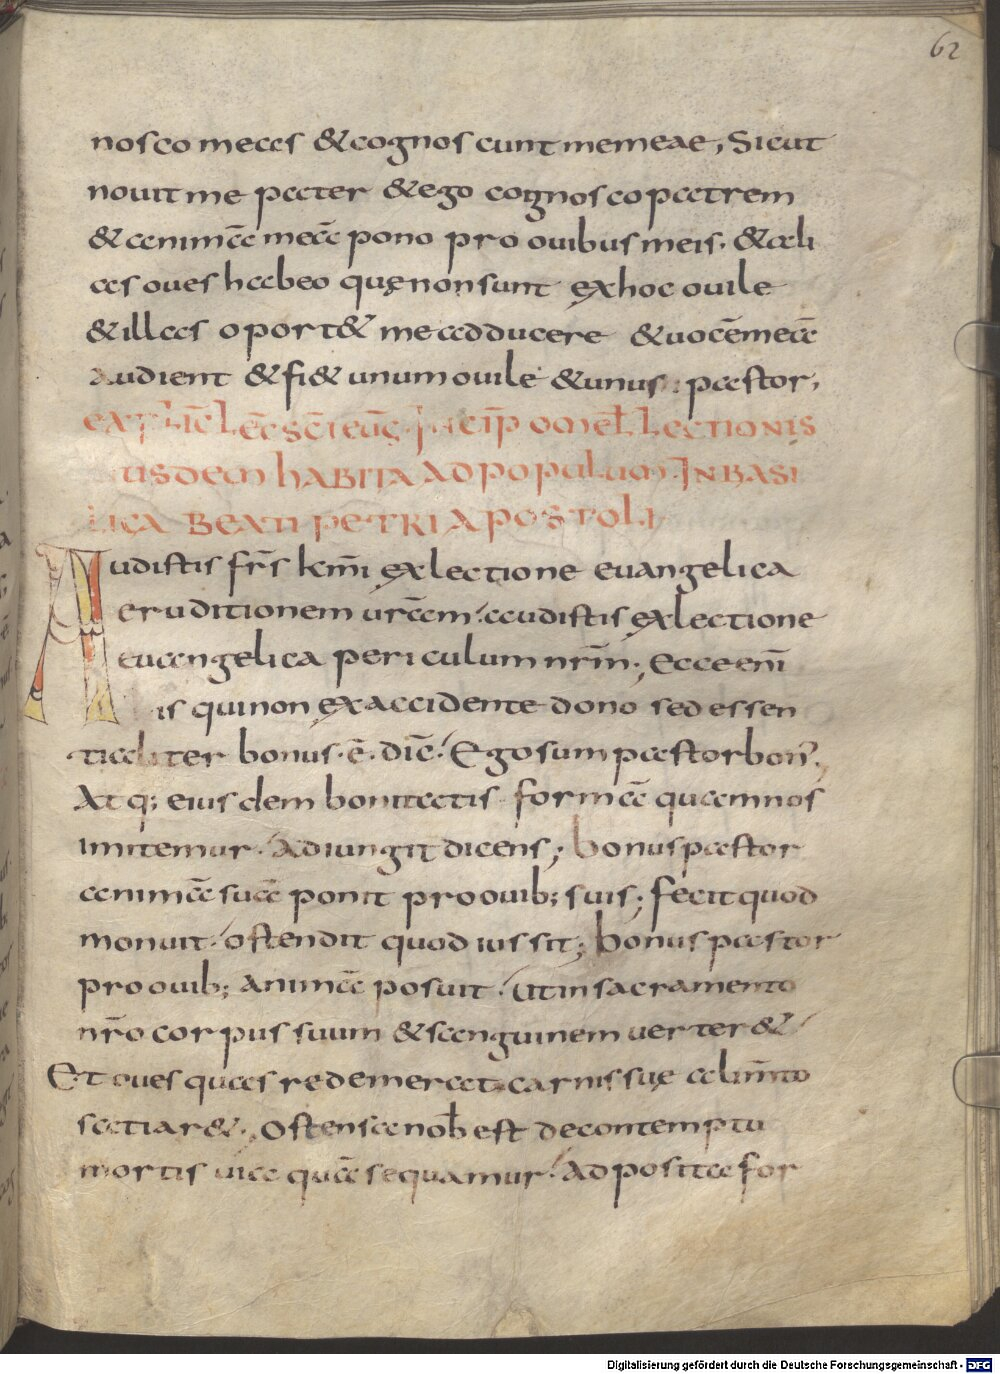 62
nosco meas & cognoscunt me meae, Sicut
nouit me pater & ego cognosco patrem
& animā meā pono pro ouibus meis. & ali
as oues habeo quę non sunt ex hoc ouile
& illas oport& me adducere & uocē meā
audient & fi& unum ouile & unus pastor,
EXPLIC̄ LEC̄ SC̄I EUG̅. INCIP̄ OMEL̄ LECTIONIS
USDEM HABITA AD POPULUM. IN BASI
LICA BEATI PETRI APOSTOLI
Audistis fr̄s km̄i ex lectione euangelica
eruditionem ur̄am. audistis ex lectione
euangelica periculum nr̄m; Ecce eni̅
is qui non ex accidente dono sed essen
tialiter bonus. ē. dic̄. Ego sum pastor bon᾽.
Atq; eiusdem bonitatis formā quam nos
imitemur. Adiungit dicens; bonus pastor
animā suā ponit pro ouib; suis; fecit quod
monuit. ostendit quod iussit; bonus pastor
pro ouib; animā posuit. Ut in sacramento
nr̄o corpus suum & sanguinem uerter&
Et oues quas redemerat carnis suę alim̄to
satiar&. Ostensa nob̄ est de contemptu
mortis uia quā sequamur. Adposita for
Digitalisierung gefördert durch die Deutsche Forschungsgemeinschaft - DFG